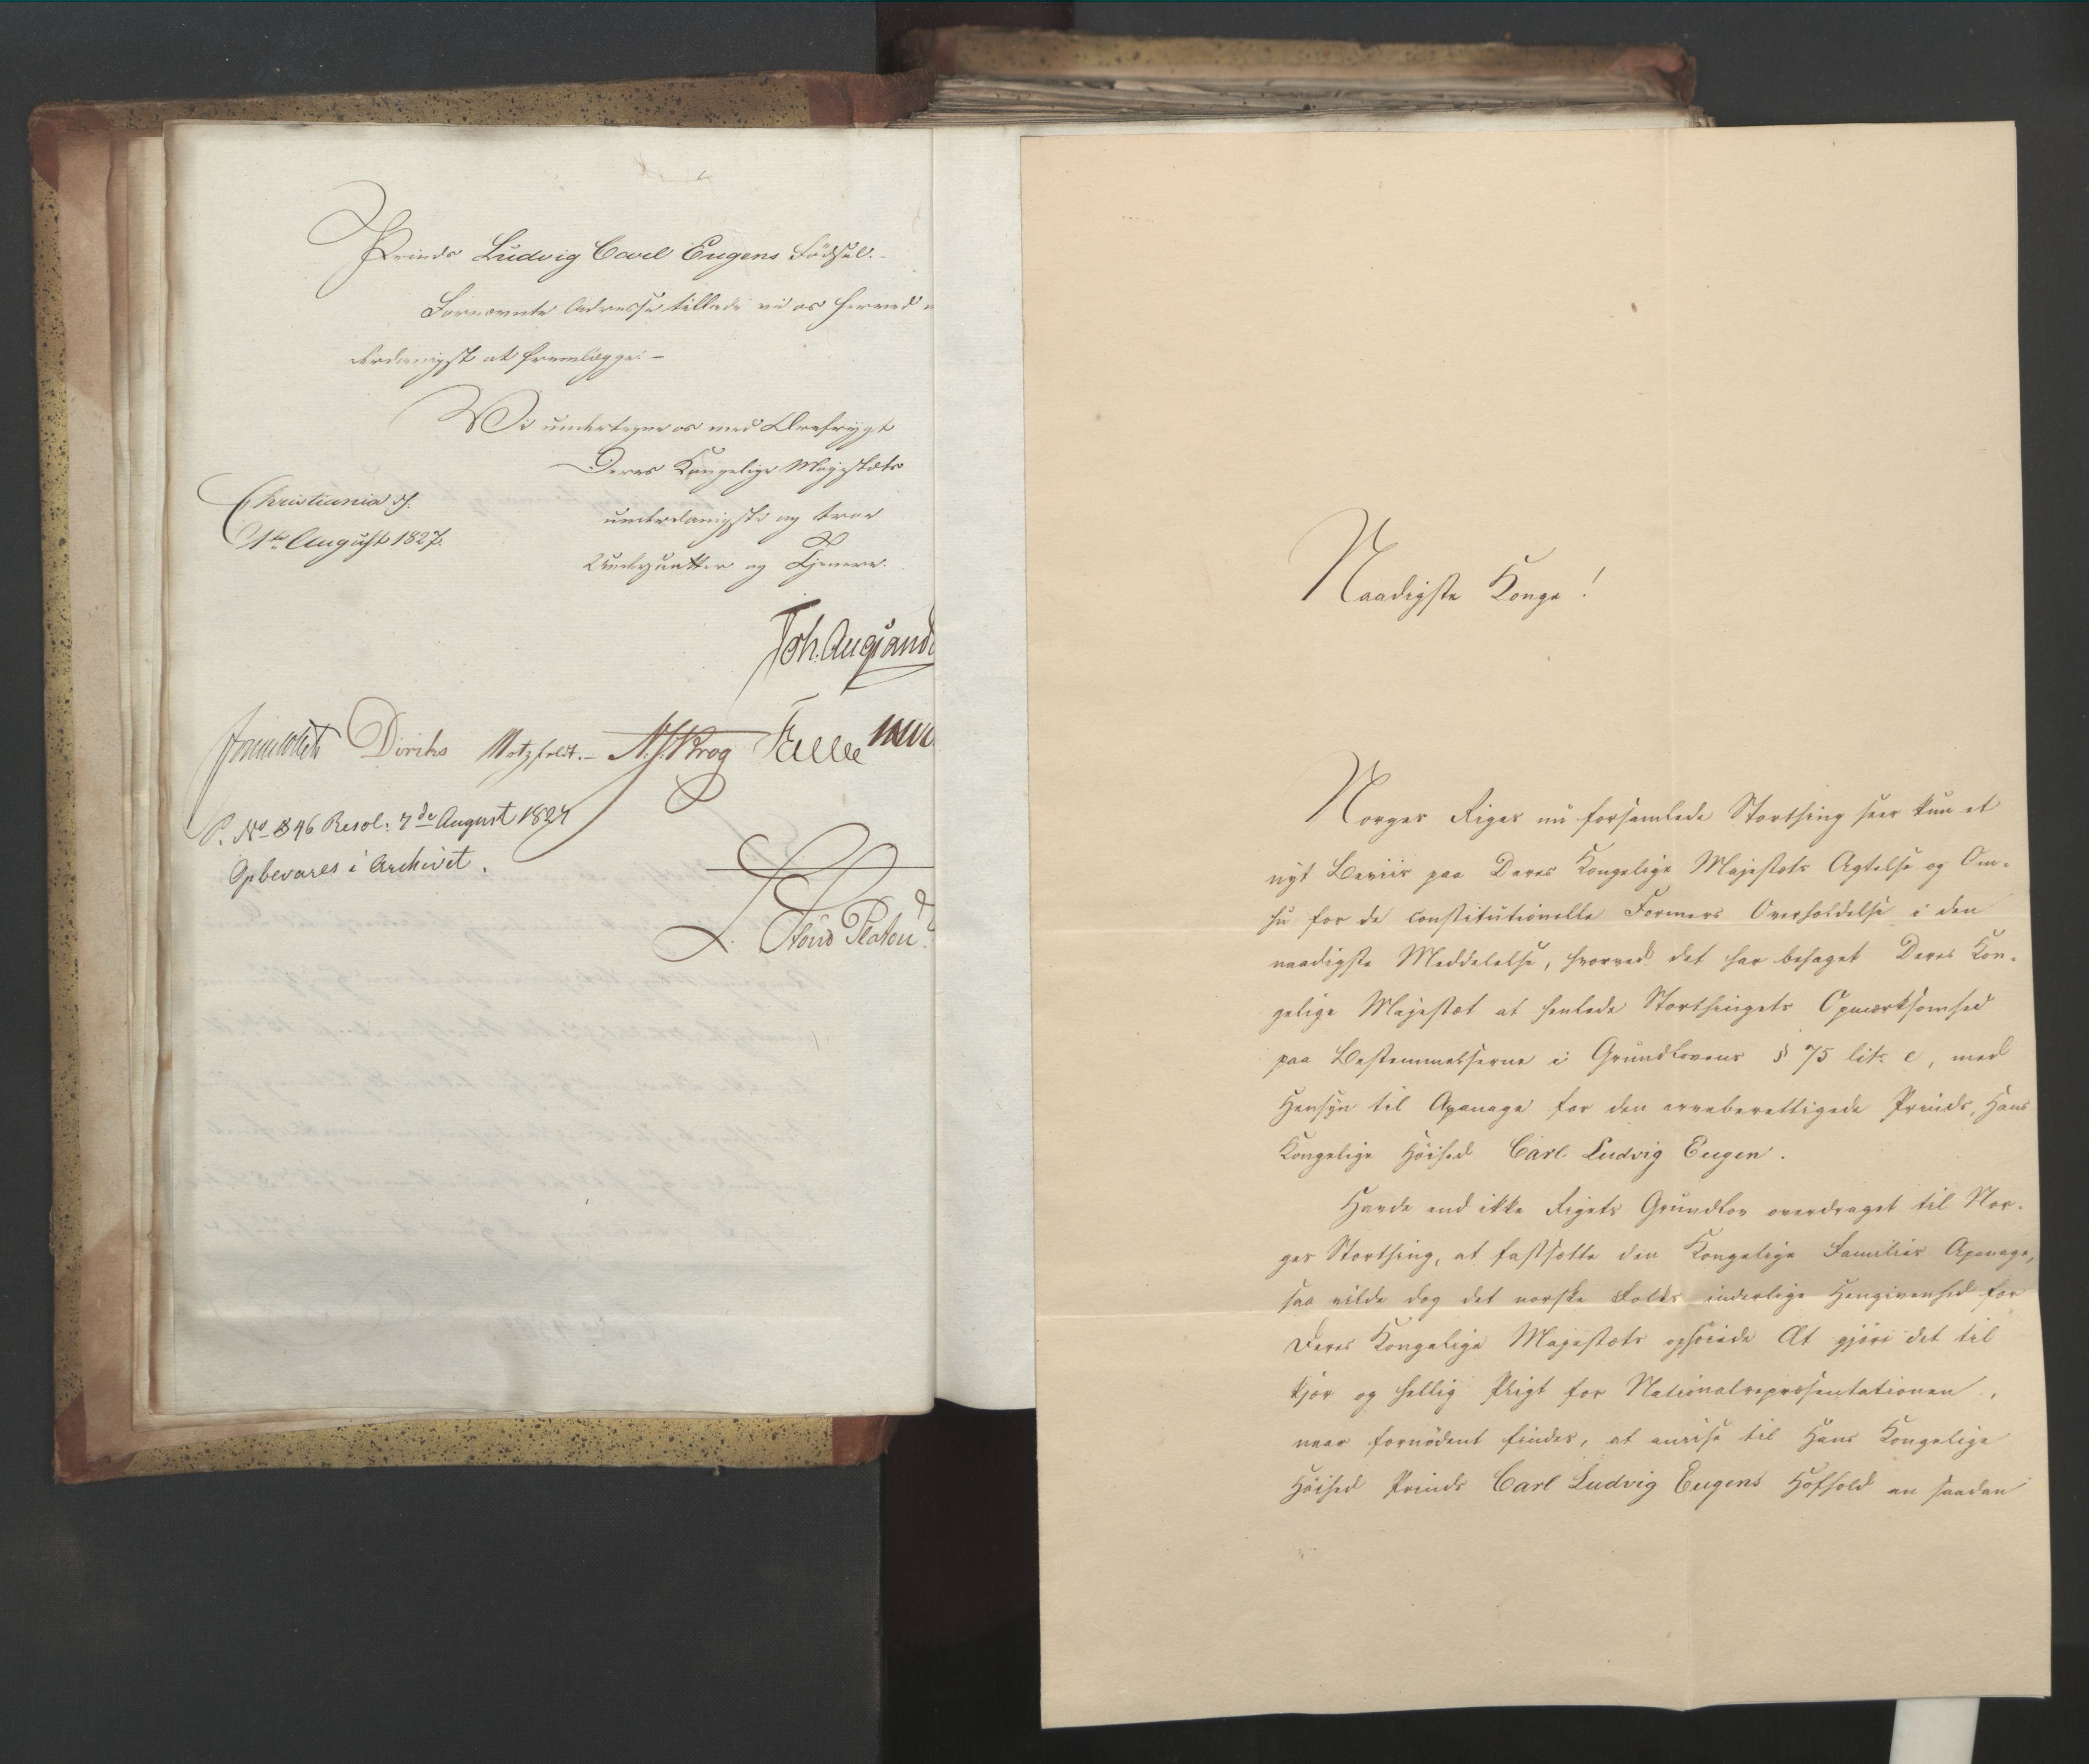 Prinds Ludvig Carl Eugens Fødsel.
Fornævnte Adresse tillade vi os herved
derdanigst at fremlægge.
Vi undertegne os med Ærefrygt
Deres Kongelige Majestæts
underdanigste og troe
Undersaatter og Tjenere.
Christiania d.
1ste August 1827.
Joh. Aug Sand
Diriks Motzfeldt.
P. No 346 Resol: 7de August 1827
Opbevares i Archivet.
Platou
Naadigste Konge!
Norges Riges nu forsamlede Storthing seer kun et
nyt Beviis paa Deres Kongelige Majestæts Agtelse og Om-
hu for de constitutionelle Formers Overholdelse i den
naadigste Meddelelse, hvorved det har behaget Deres Kon-
gelige Majestæt at henlede Storthingets Opmærksomhed
paa Bestemmelserne i Grundlovens § 75 lit: e, med
Hensyn til Apanage for den arveberettigede Prinds, Hans
Kongelige Höihed Carl Ludvig Eugen.
Havde end ikke Rigets Grundlov overdraget til Nor-
ges Storthing, at fastsætte den Kongelige Families Apanage,
saa vilde dog det norske Folks inderlige Hengivenhed for
Deres Kongelige Majestæts ophöiede Æt gjöre det til
kjær og hellig Pligt for Nationalrepræsentationen,
naar fornödent findes, at anvise til Hans Kongelige
Höihed Prinds Carl Ludvig Eugens Hofhold en saadan